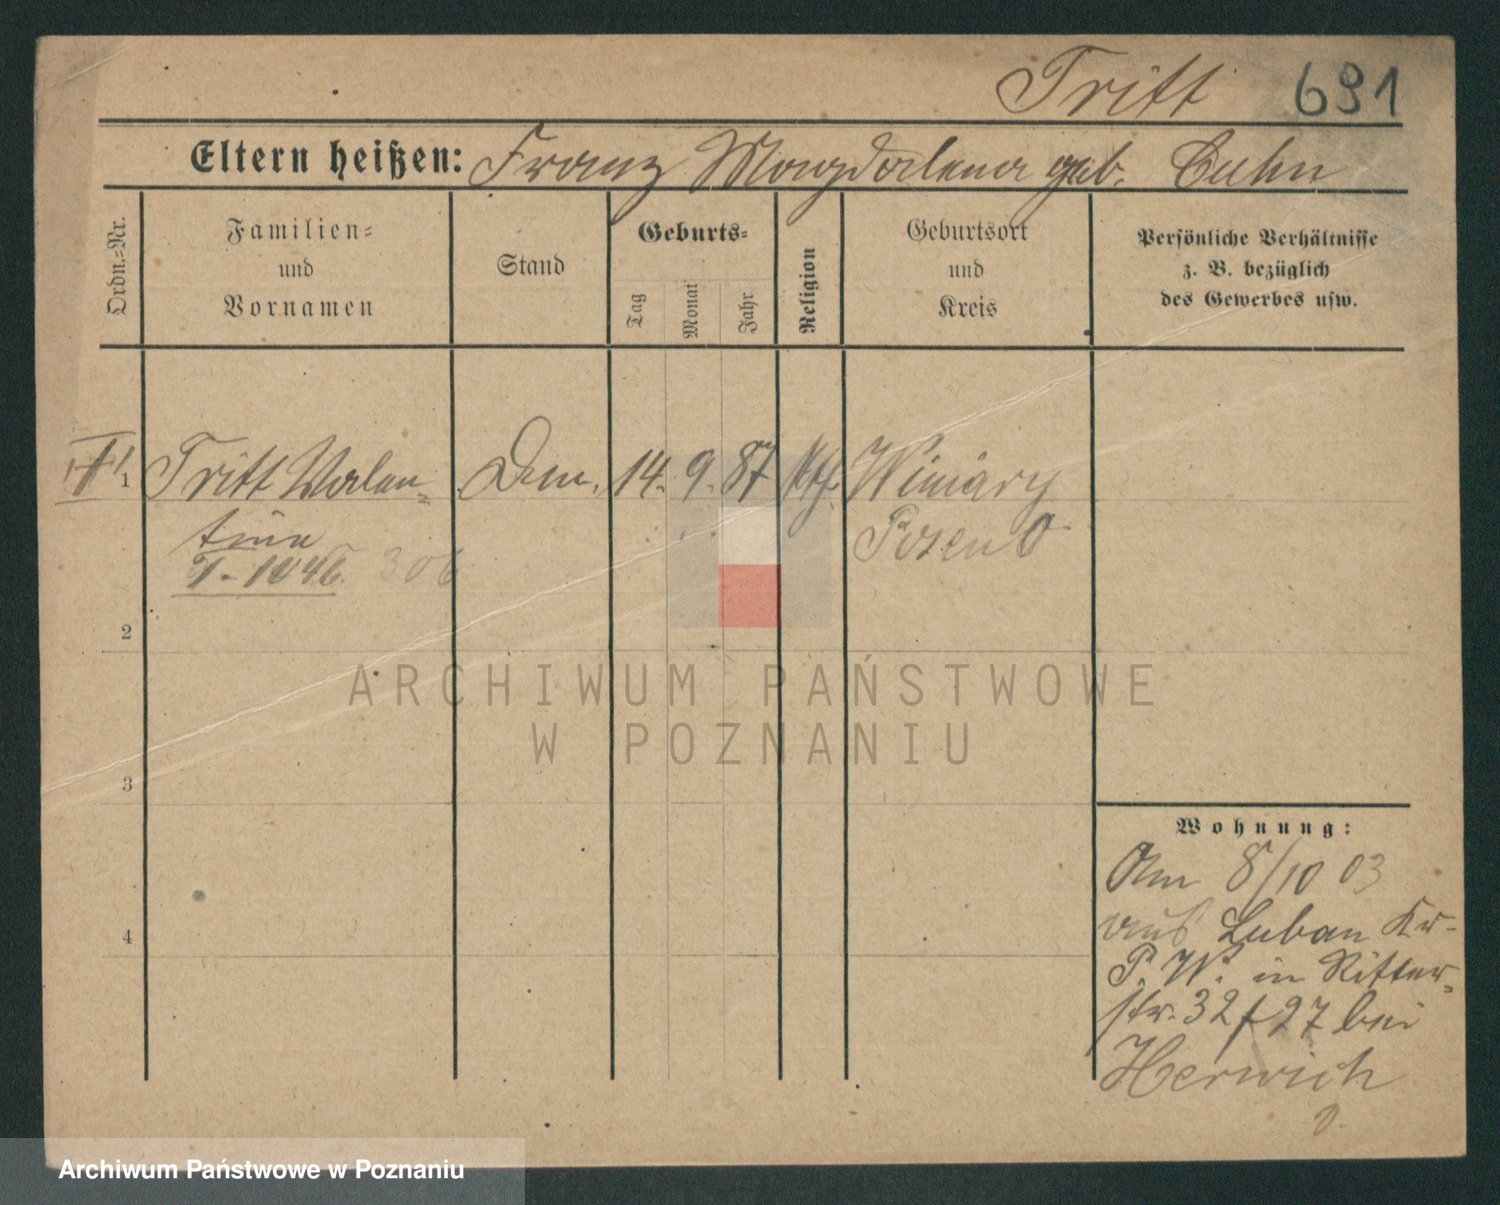 Tritt 691
Eltern heißen: Franz Magdalena geb. Cuhn
Ordn.-Nr.
Familien-
und
Vornamen
Stand
Geburts-
Tag
Monat
Jahr
Religion
Geburtsort
und
Kreis
Persönliche Verhältnisse
z. B. bezüglich
des Gewerbes usw.
1 Tritt Valen- 14. 9. 87 kth. Winiary
tine Posen O
306
2
3
4
ARCHIWUM PAŃSTWOWE
W POZNANIU
Wohnung:
Am 8/10 03
aus Luban Kr.
P. W. in Ritter-
str. 32 / 27 bei
Herwich
Archiwum Państwowe w Poznaniu